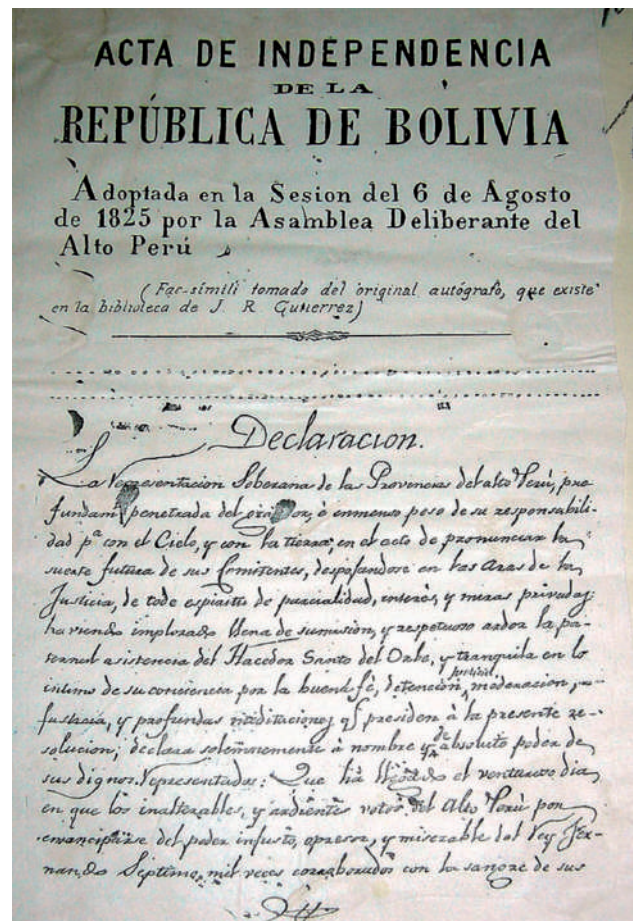 ACTA DE INDEPENDENCIA
DE LA
REPÚBLICA DE BOLIVIA
Adoptada en la Sesion del 6 de Agosto
de 1825 por la Asamblea Deliberante del
Alto Perú
(Fac-símili tomado del original autógrafo, que existe
en la biblioteca de J. R. Gutierrez)
Declaracion.
La Representacion Soberana de las Provincias del alto Perú, pro
fundam penetrada del grandor, é inmenso peso de su responsabili-
dad pª con el Cielo, y con la tierra, en el acto de pronunciar la
suerte futura de sus Comitentes, despojandose en las aras de la
Justicia, de todo espiritu de parcialidad, interés, y miras privadas;
haviendo implorado llena de sumision, y respetuoso ardor la pa-
ternal asistencia del Hacedor Santo del Orbe, y tranquila en lo
intimo de su conciencia por la buena fé, detencion, moderacion,
justicia, y profundas meditaciones qe presiden á la presente re-
solucion; declara solemnemente á nombre y de absoluto poder de
sus dignos Representados: Que há llegado el venturoso dia
en que los inalterables, y ardientes votos del Alto Perú por
emanciparse del poder injusto, opresor, y miserable del Rey Fer-
nando Septimo, mil veces corroborados con la sangre de sus